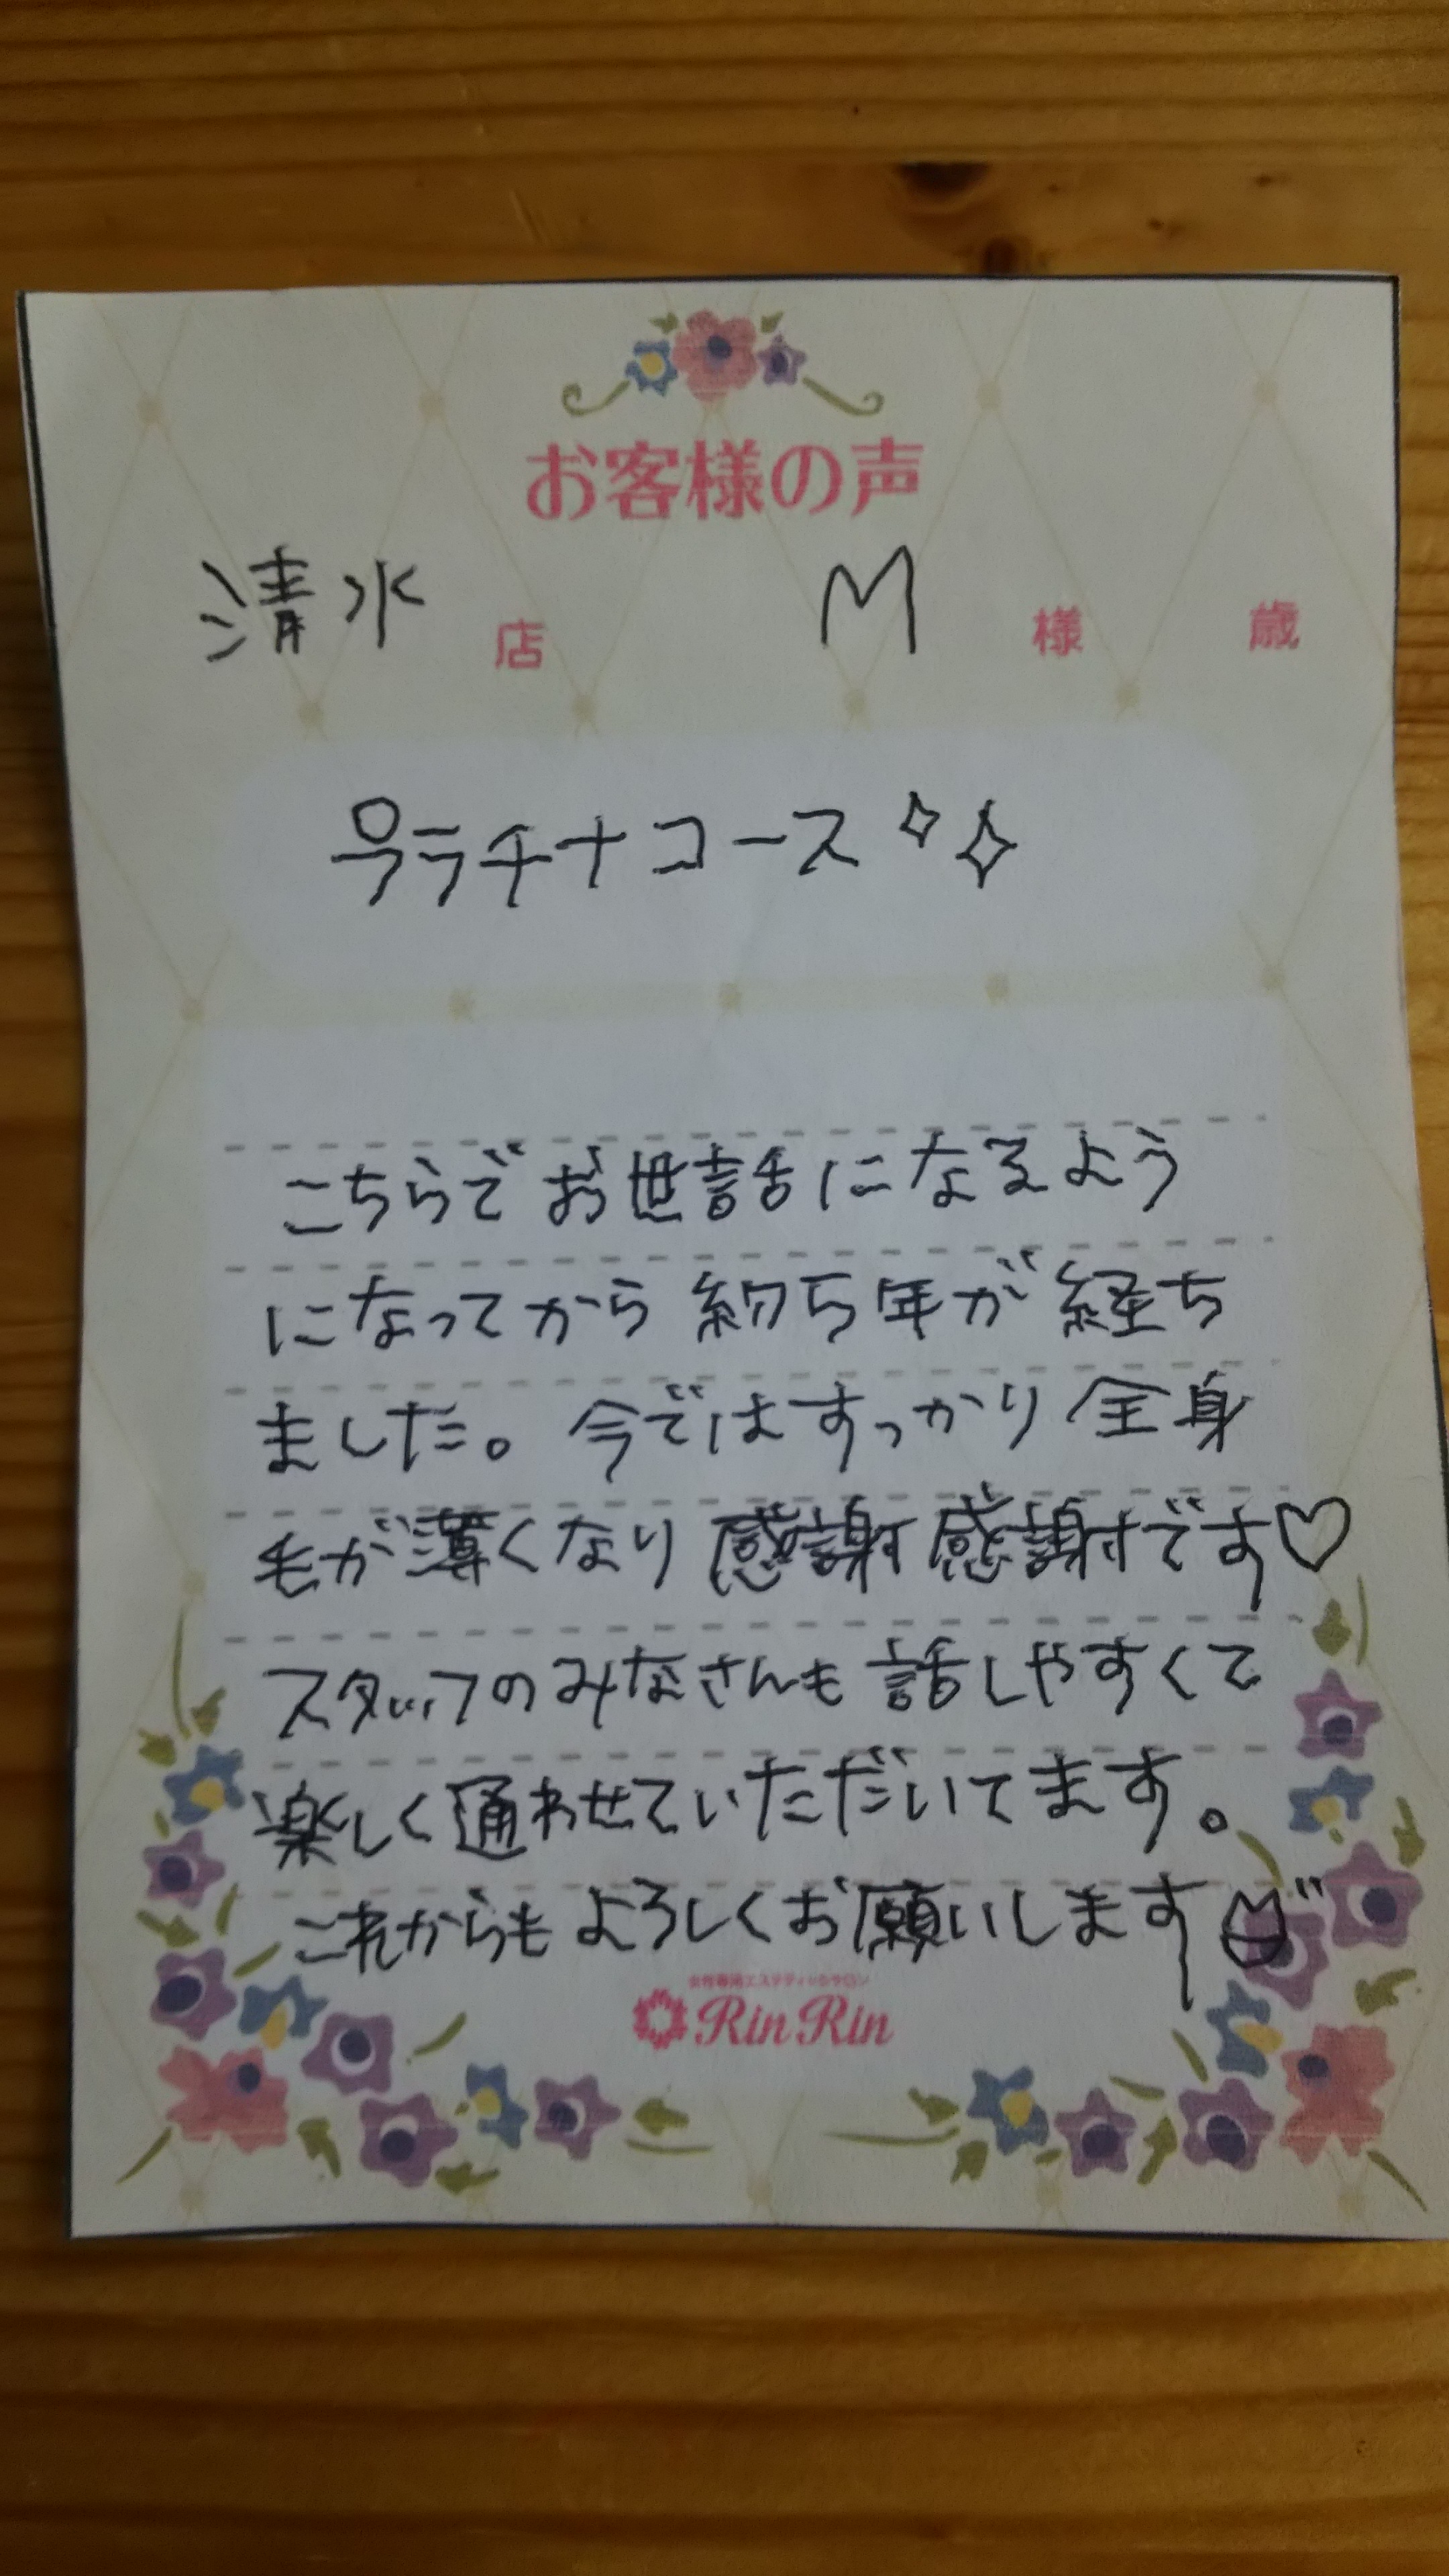 お客様の声
清水 店 M 様 歳
プラチナコース
こちらでお世話になるよう
になってから約5年が経ち
ました。今ではすっかり全身
毛が薄くなり感謝感謝です♡
スタッフのみなさんも話しやすくて
楽しく通わせていただいてます。
これからもよろしくお願いします
女性専用エステティックサロン
RinRin